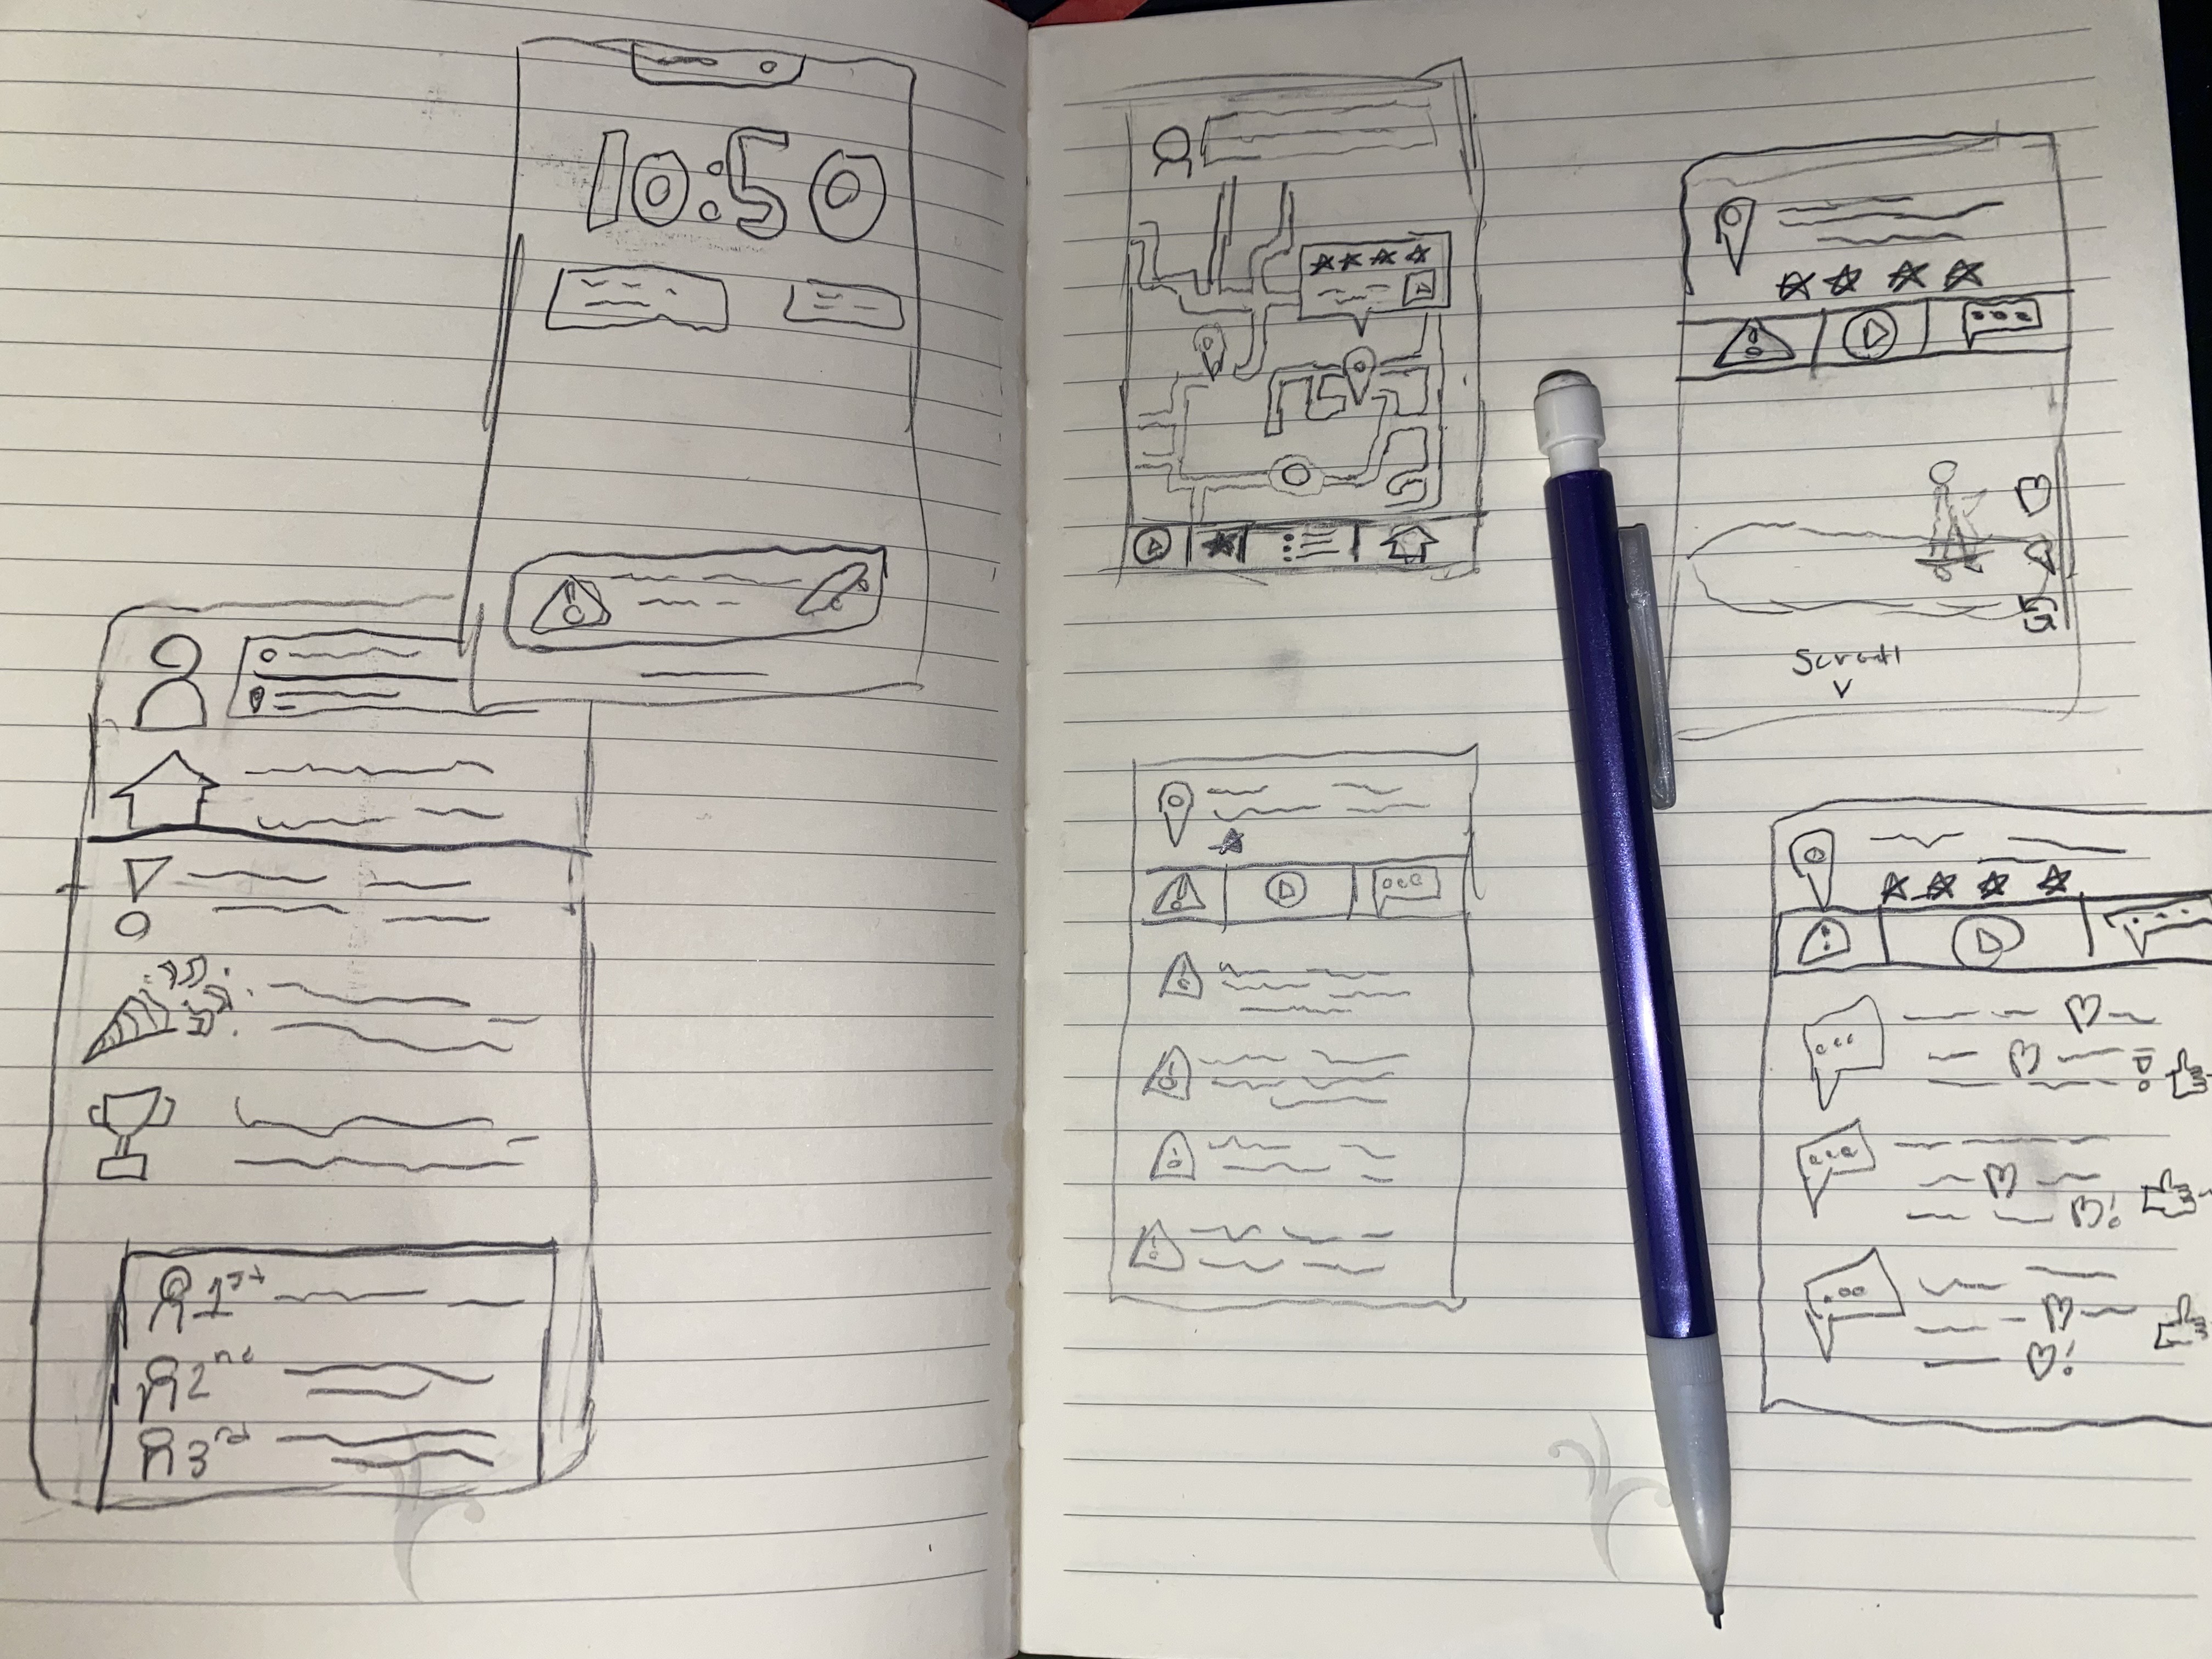 10:50
1st
2nd
3rd
Scroll